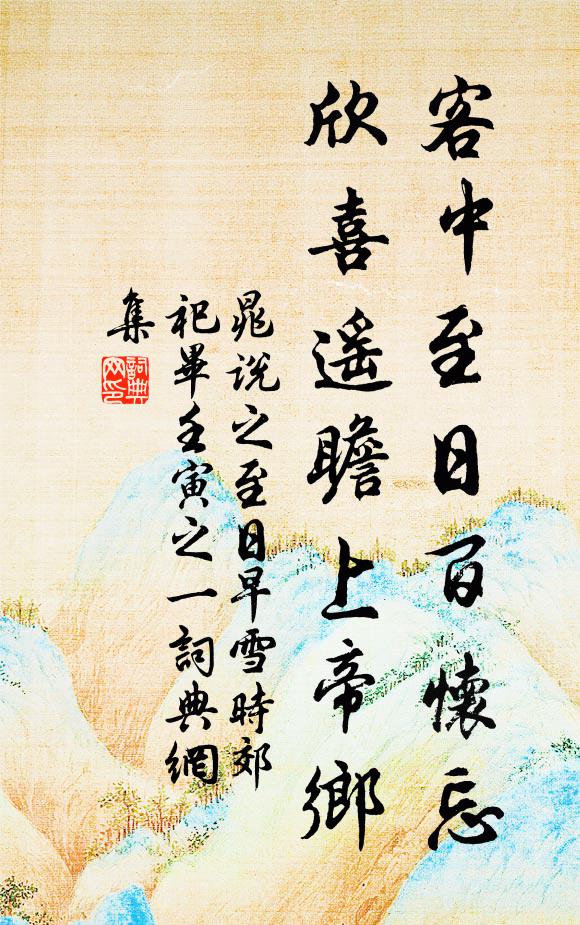 客中至日百懷忘
欣喜遥瞻上帝鄉
晁說之至日早雪時郊
祀畢壬寅之一詞典網
集
詞典
网印